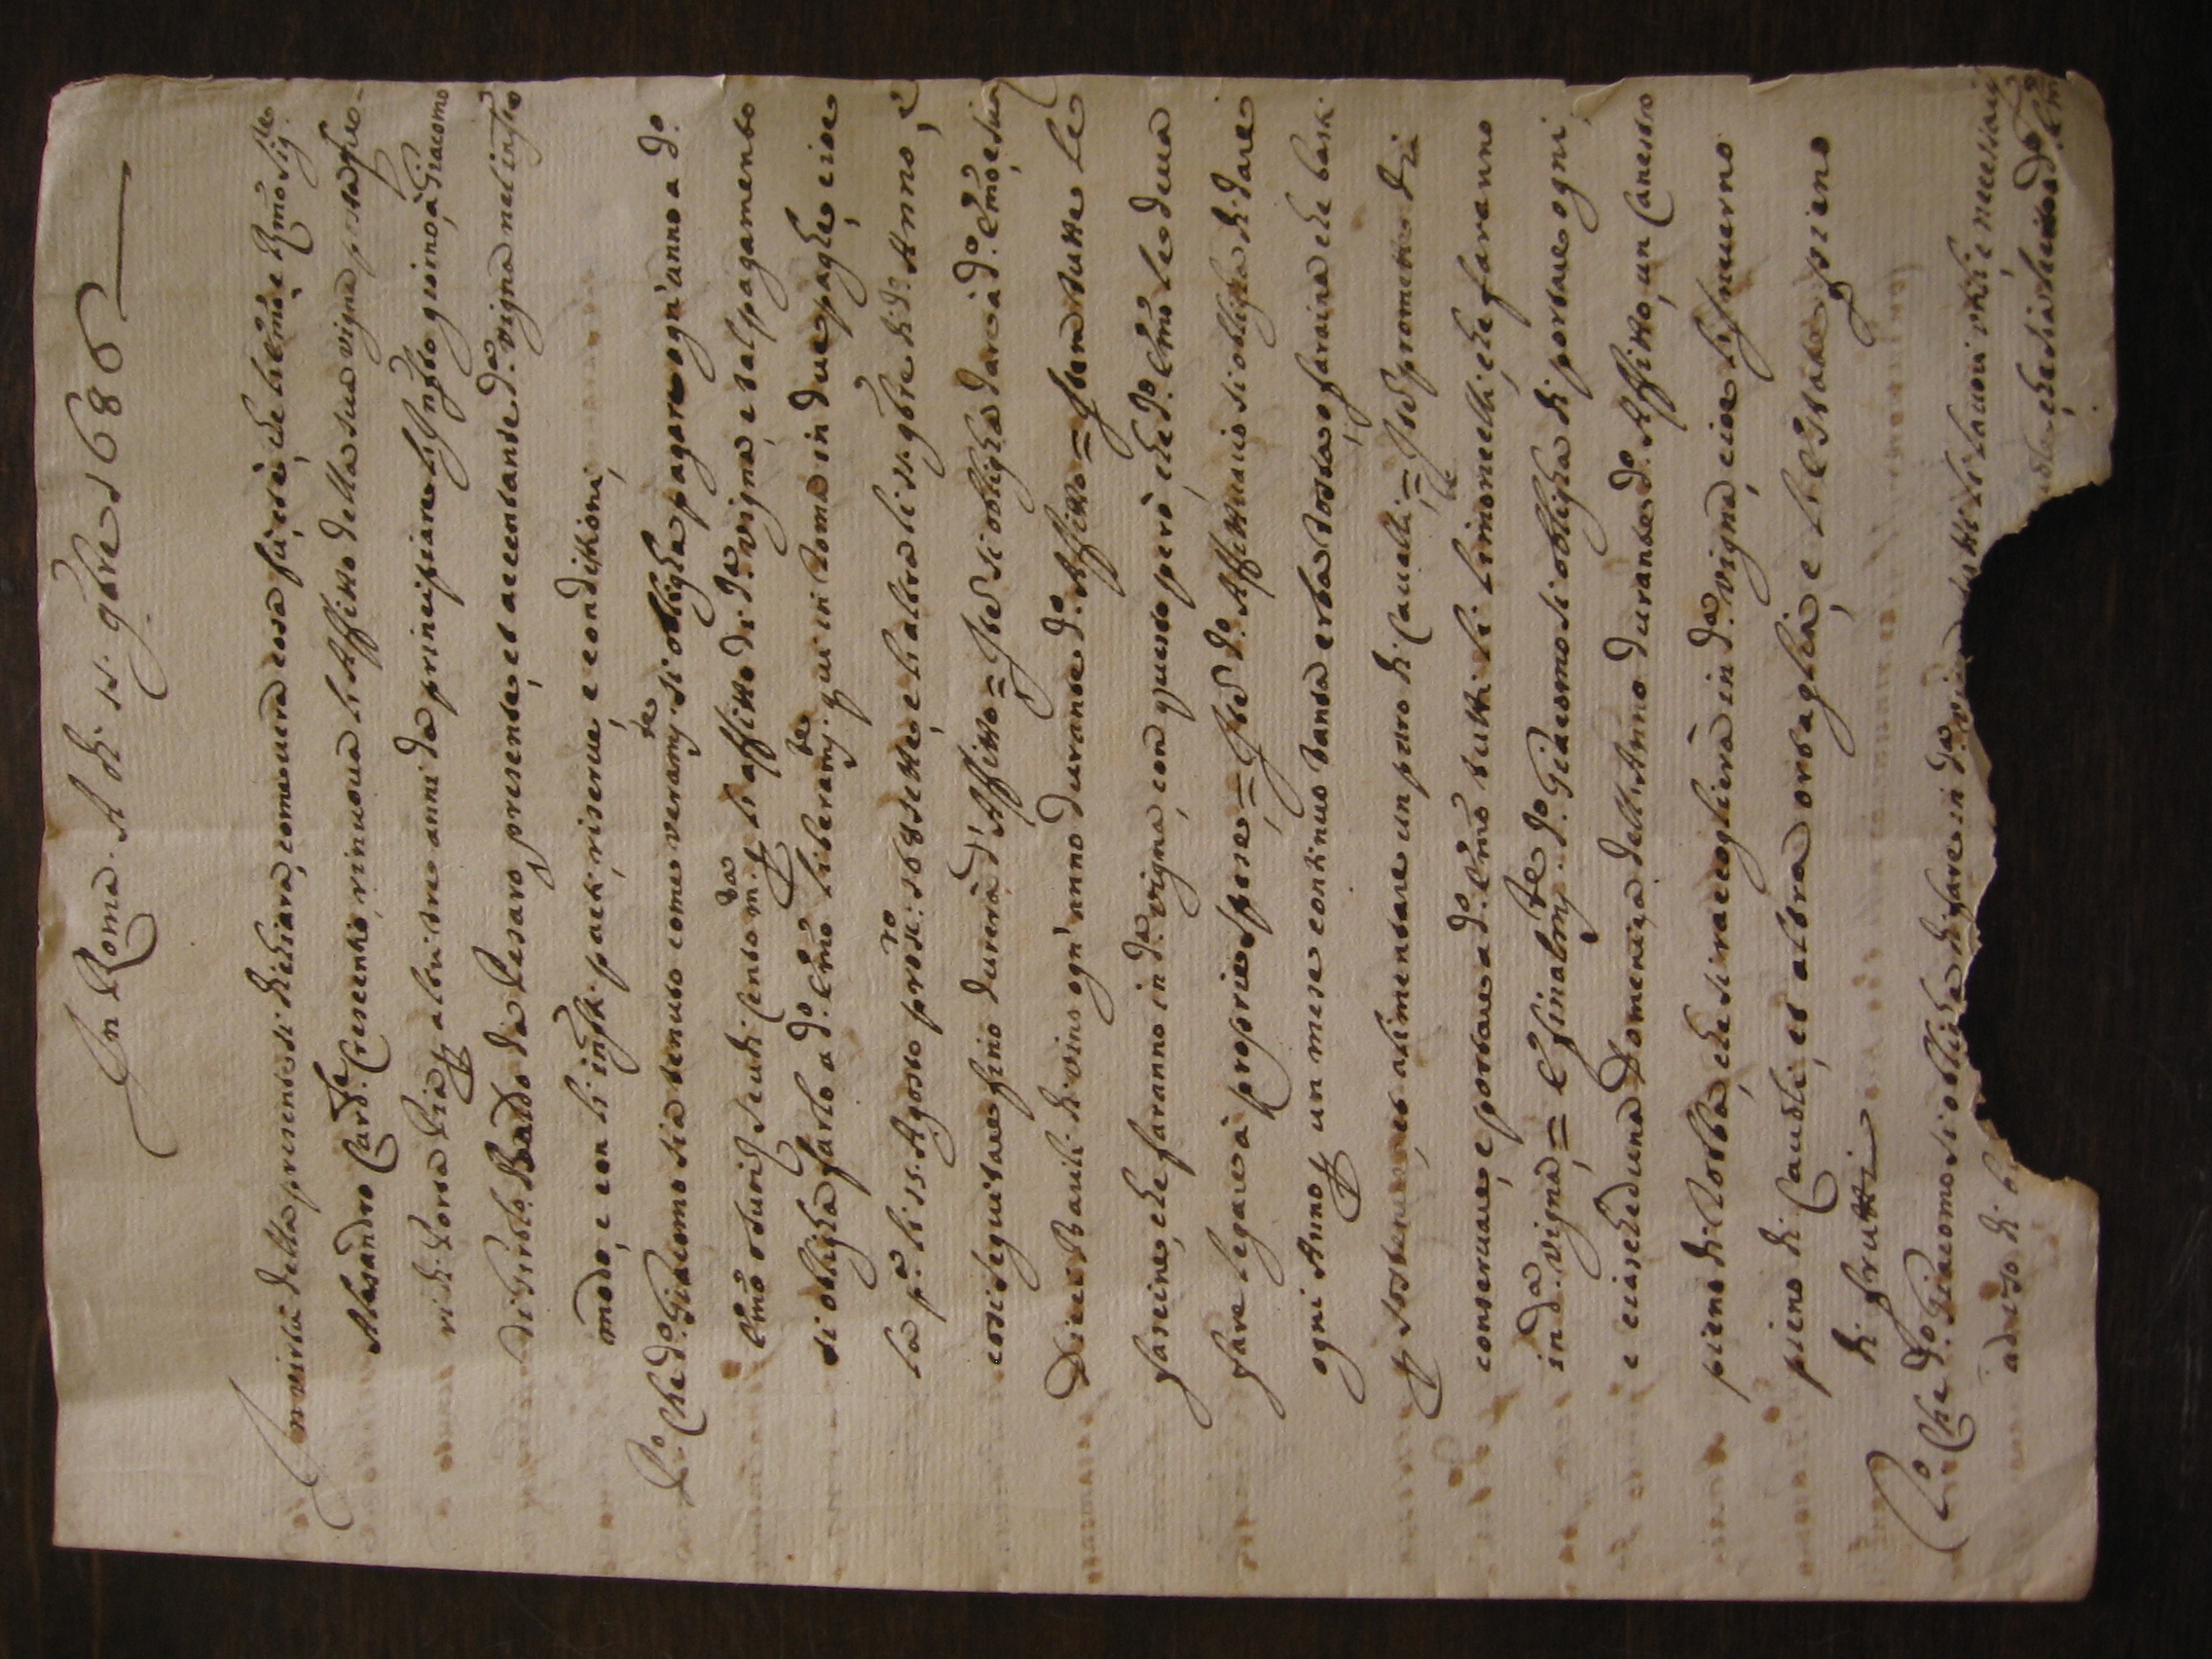 In Roma. A di 11. 9bre 1686
In virtù della presente si dichiara, come vera cosa fù, et è, che l'Em̃o e Rm̃o Sig.re
Alesandro Card.le Crescentio, rinuova li Affitto della sua vigna fuo-
ri di Porta Pia p altri tre anni da principiare li giorno, à Giacomo
di Baldo da Pesaro presente, et accettante d.a vigna nel infr̃o
modo, e con li infr̃i patti, riserue, e condittioni,
P.o Che d.o Giacomo sia tenuto come veram.te si obligha pagare ogn'anno a d.o
Em̃o scudi m.ta p li affitto di d.a vigna, e tal pagamento
si obligha farlo a d.o Em̃o liberam.te qui in Roma in due paghe, cioe
la p.a li 15. Agosto pross.o 168sette, e li altra li 11. 9bre di d.o Anno, e
così seguitare fino durerà d.o Affitto = Item si obligha dare à d.o Em̃o, e sui
Dieci Barili di vino ogn'anno durante d.o Affitto = Item tutte le
fascine, che faranno in d.a vigna, con questo però, che d.o Em̃o le deua
fare legare à proprie spese = Item d.o Affittuario si obligha di dare
ogni Anno p un mese continuo tanta erba tosta, o faraina che basti
p sostenere, et alimentare un paro di Caualli = Item promette di
conseruare, e portare a d.o Em̃o tutti li limoncelli, che faranno
in d.a vigna = E finalm.te d.o Giacomo si obligha di portare ogni,
e ciascheduna Domenica dell'Anno durante d.o Affitto, un Canestro
pieno di Robba, che si raccoglierà in d.a vigna, cioe l'Inuerno
pieno di Cauoli, et altra ortaglia, e l'Estate pieno
di frutti
2.o Che d.o Giacomo si obligha di fare in d.a tutti li lauori utili, e necessarij
ad uso di che sia